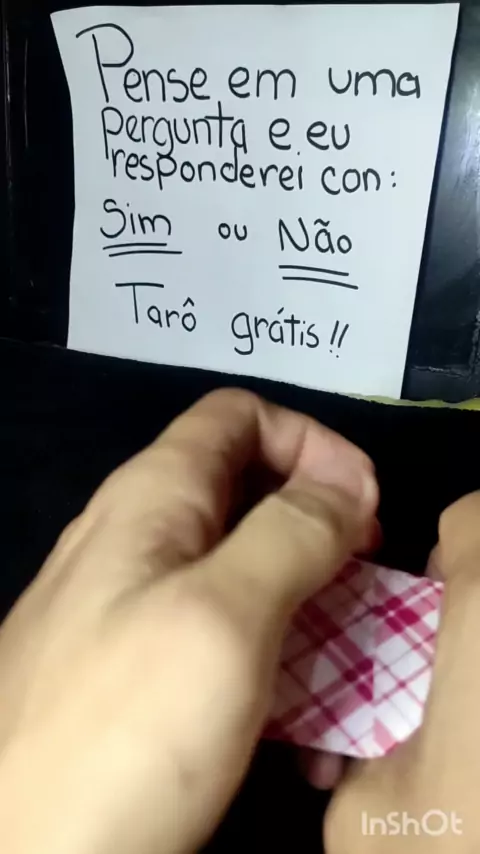 Pense em uma
pergunta e eu
responderei con:
Sim ou Não
Tarô grátis!!
InShOt